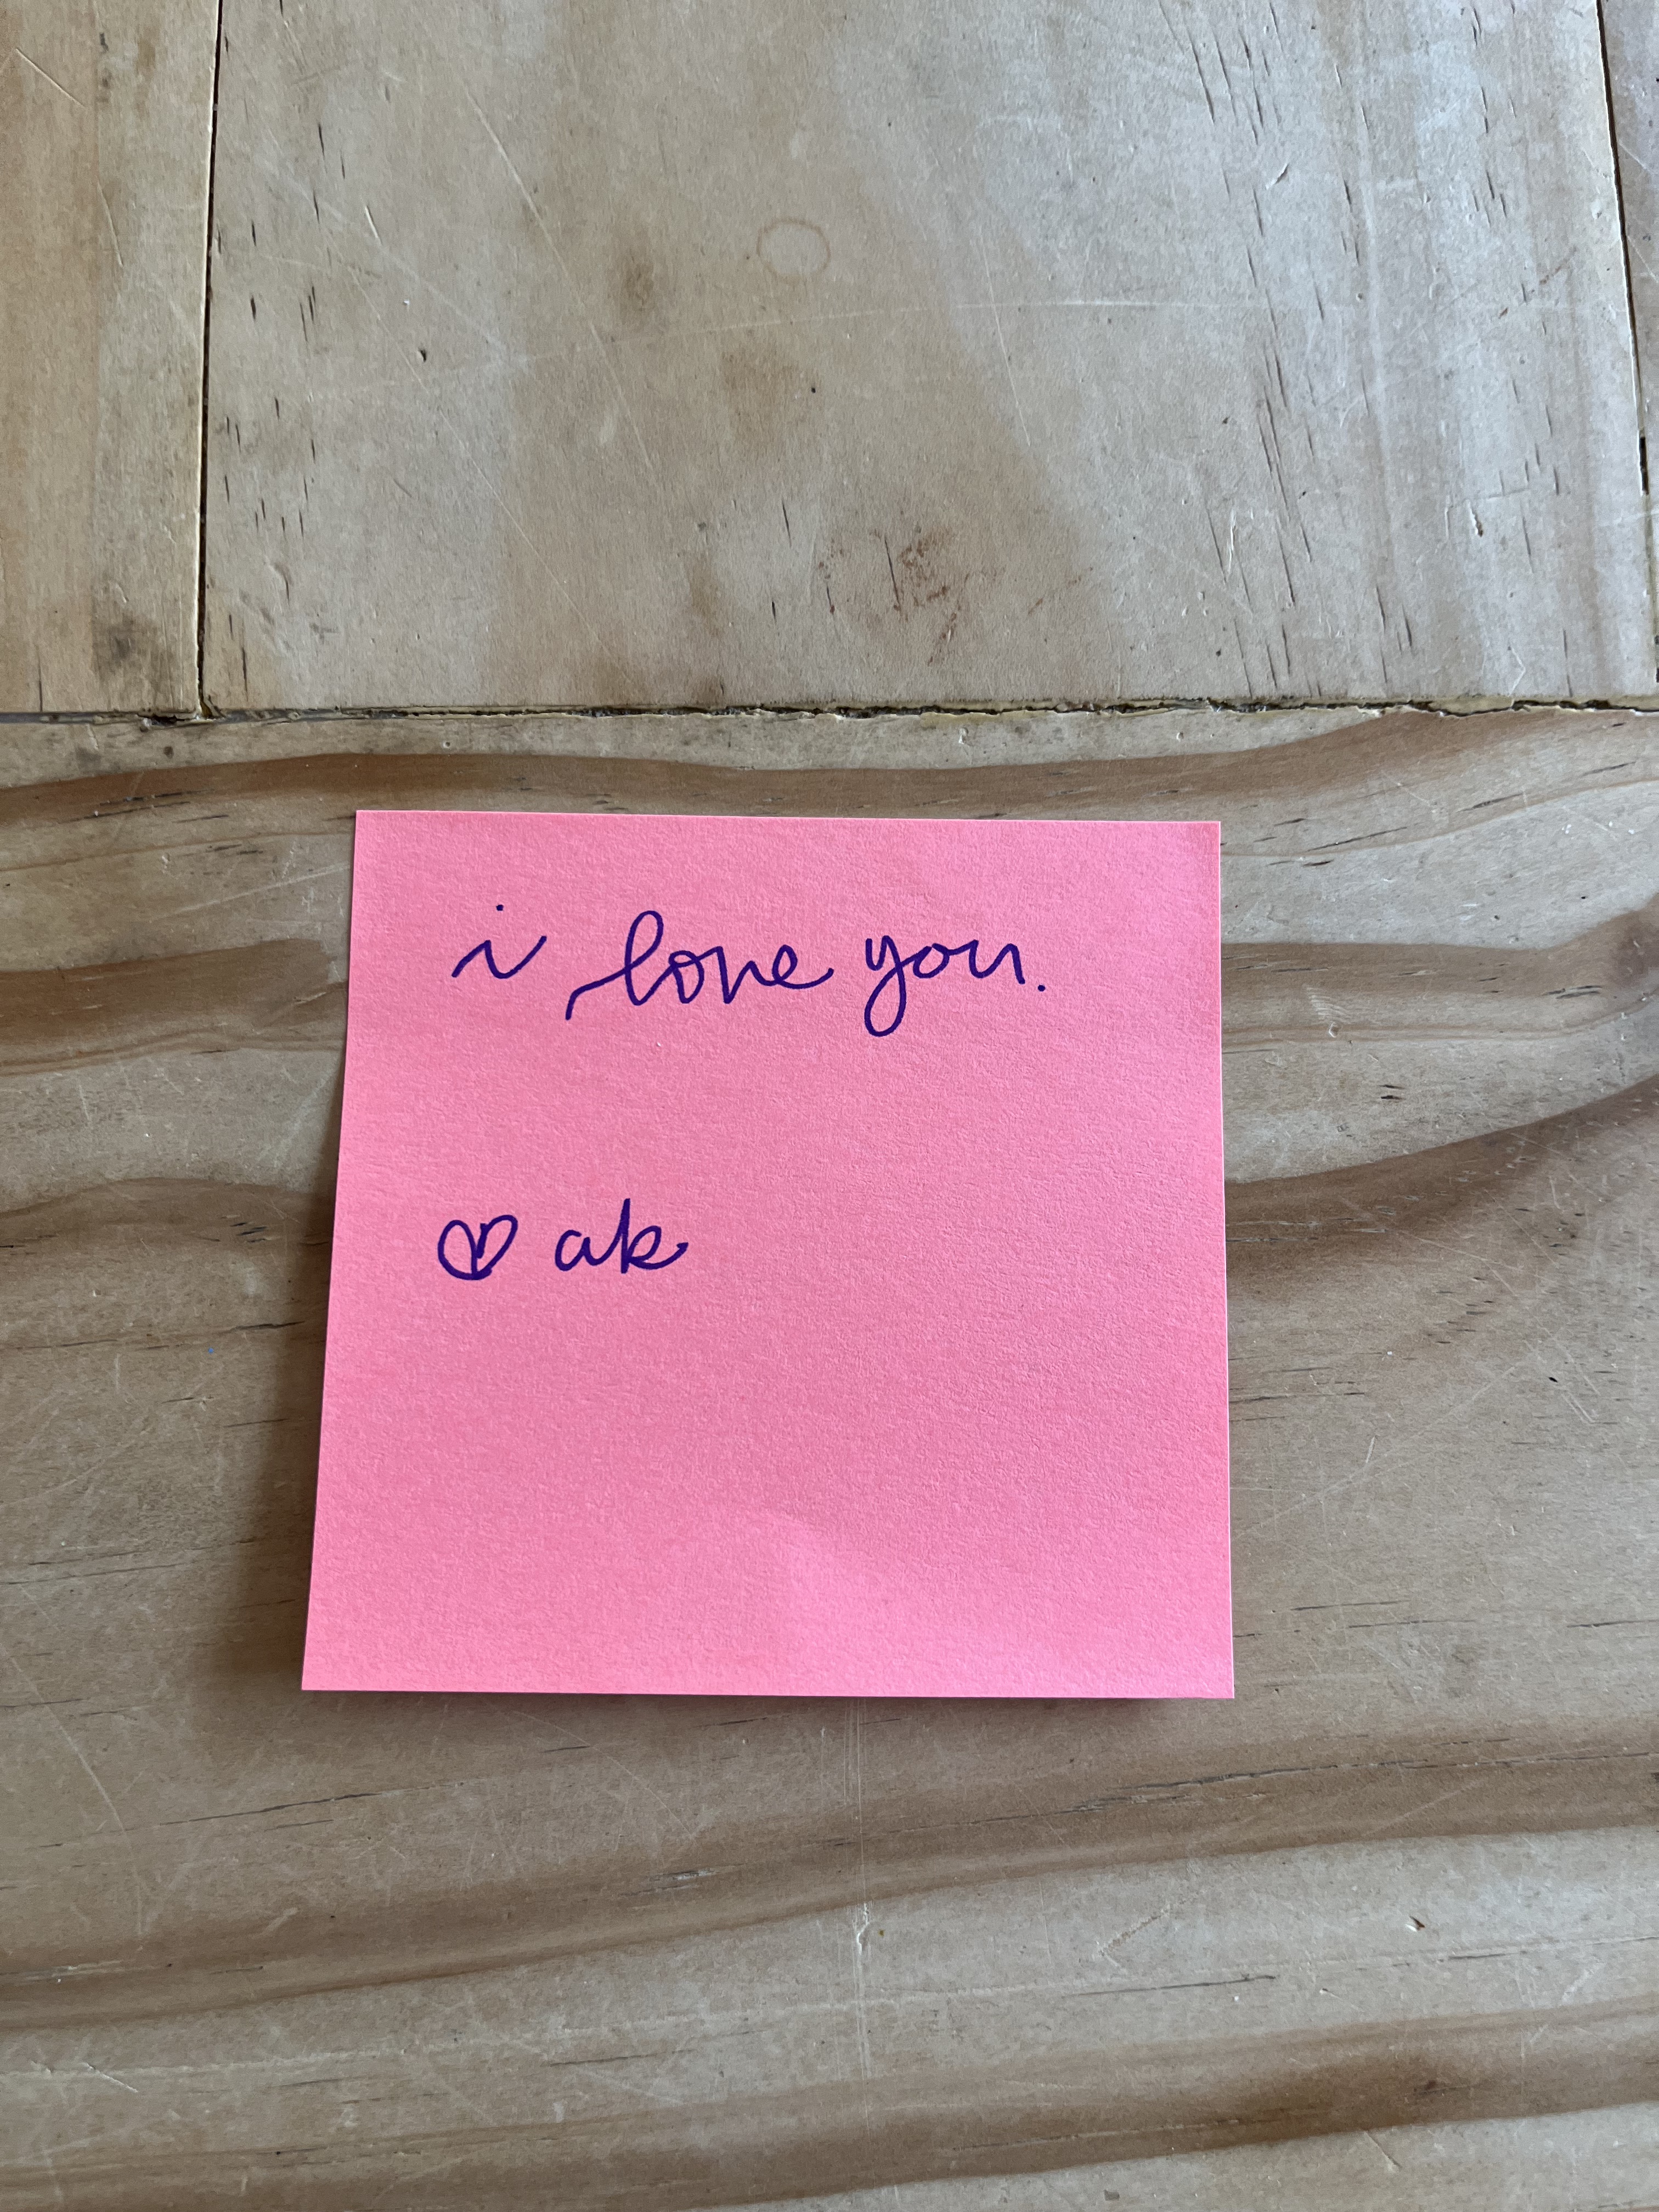 i love you.
♡ ak